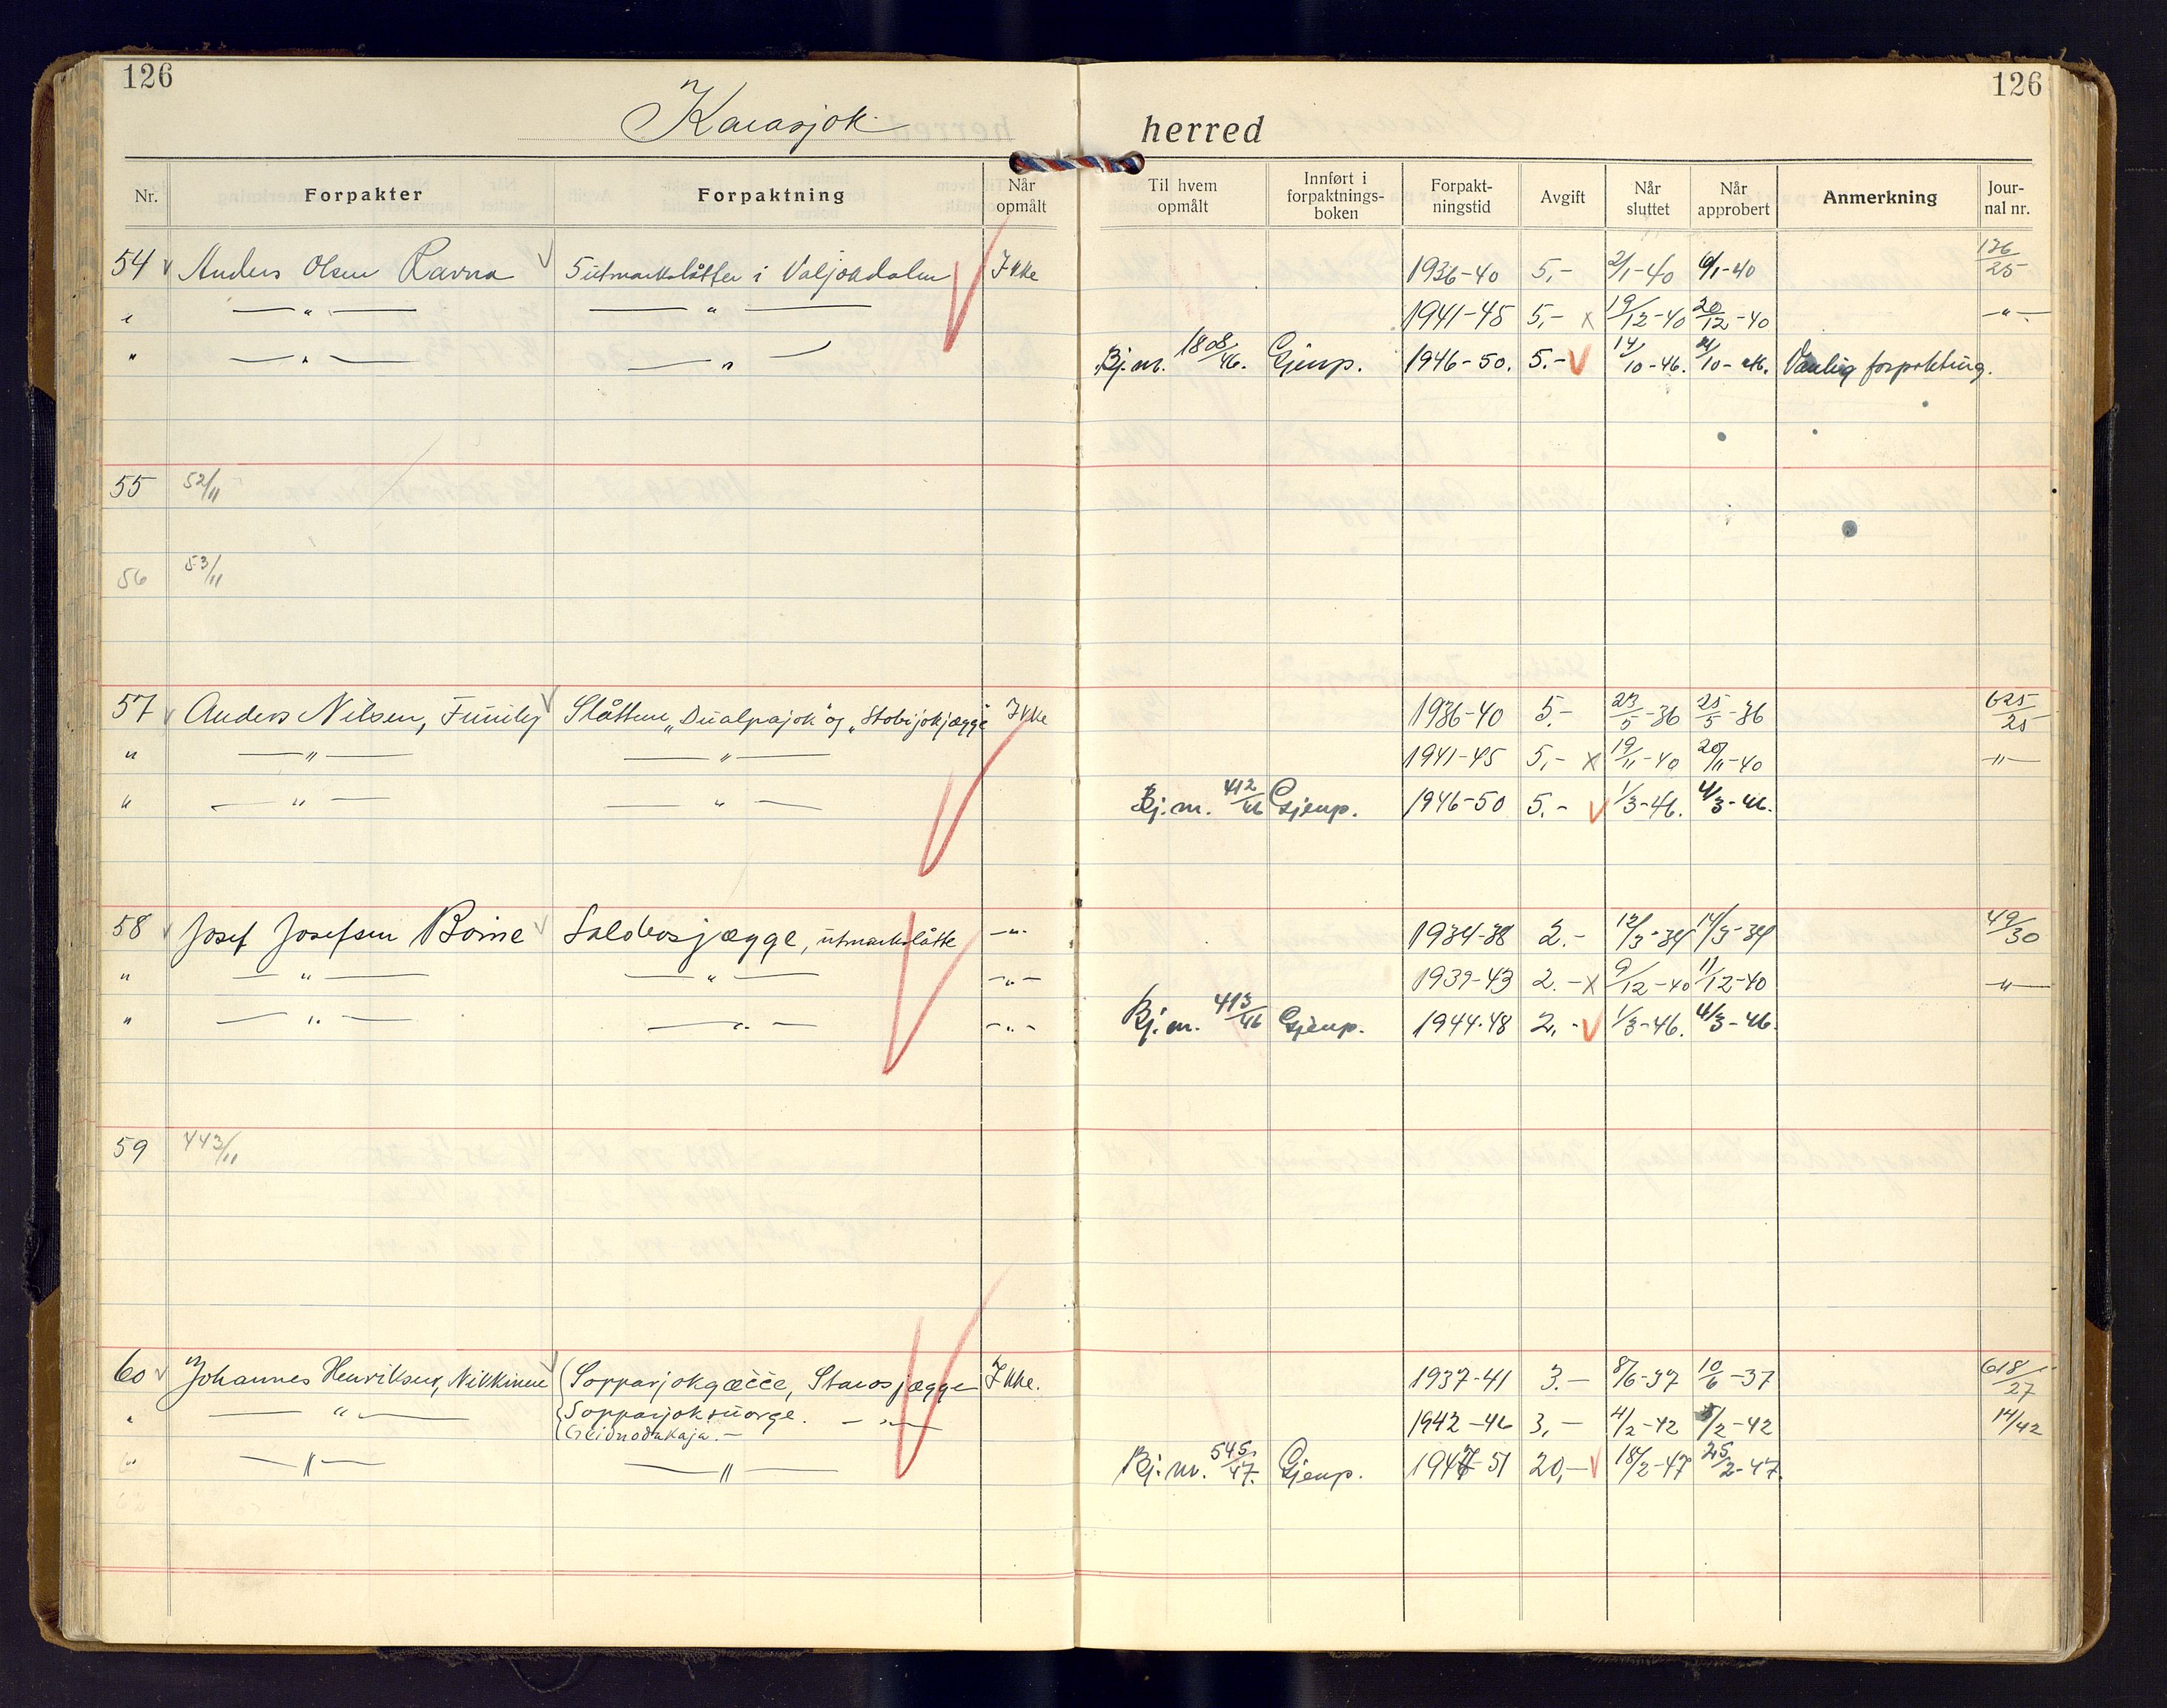 126 126
Karasjok herred
Nr. Forpakter Forpaktning Når opmålt Til hvem opmålt Innført i forpaktnings-boken Forpakt-ningstid Avgift Når sluttet Når approbert Anmerkning Jour-nal nr.
54 Anders Olsen Ravna 5 utmarkslåtter i Valjokdalen Ikke 1936-40 5,- 2/1-40 6/1-40 126/25
" — " — — " — 1941-45 5,- x 19/12-40 20/12-40 — " —
" — " — — " — Bj.nr. 1808/46. Gjenp. 1946-50. 5.- 14/10-46. 10-46. Vanlig forpakting.
55 52/11
56 53/11
57 Anders Nilsen, Slåttene "Dualpajok" og "Stobijokjægge" Ikke 1936-40 5.- 23/5-36 25/5-36 625/25
" — " — — " — 1941-45 5,- x 19/11-40 20/11-40 — " —
" — " — — " — Bj.nr. 412/46 Gjenp. 1946-50 5.- 1/3-46. 4/3-46.
58 Josef Josefsen Boine utmarkslåtte — " — 1934-38 2.- 12/3-34 14/3-34 49/30
" — " — — " — — " — 1939-43 2.- x 9/12-40 11/12-40 — " —
" — " — — " — — " — Bj.nr. 413/46 Gjenp. 1944-48 2,- 1/3-46. 4/3-46.
59 443/11
60 Johannes Henriksen, Nikkinen Sopparjokgæčče, Starosjægge Ikke. 1937-41 3.- 8/6-37 10/6-37 618/27
" — " — Sopparjoksuorge. — " — 1942-46 3,- 4/2-42 5/2-42 14/42
" — " — — " — Bj.nr. 545/47. Gjenp. 1947-51 20,- 18/2-47 25/2-47.